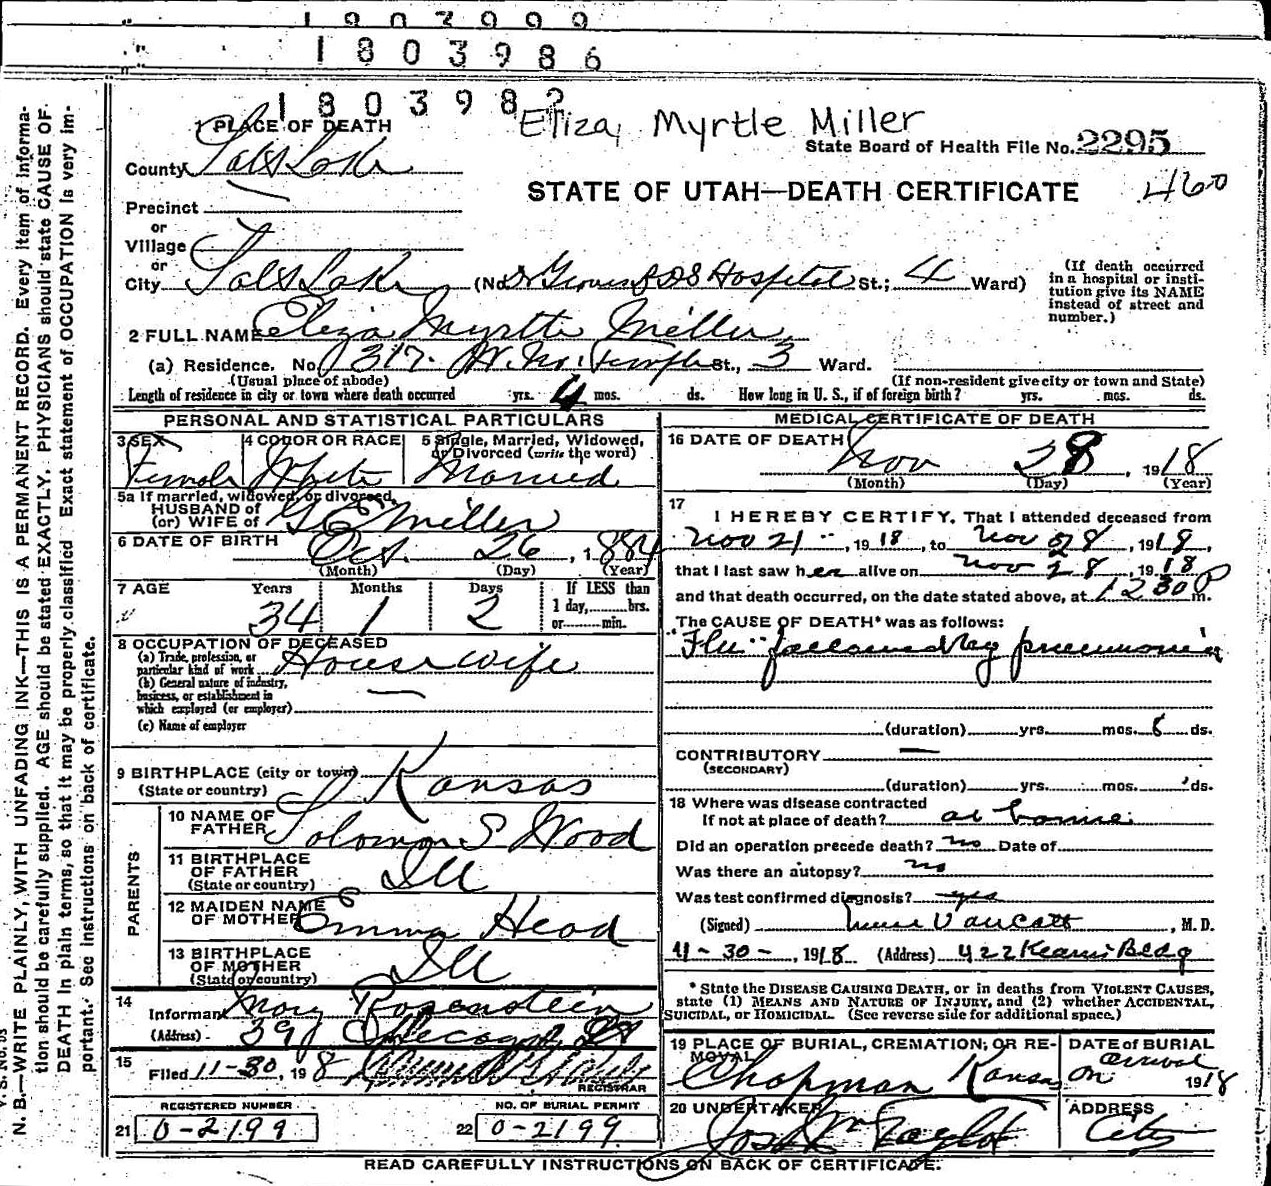 1803986
180398
Eliza Myrtle Miller
1 PLACE OF DEATH
State Board of Health File No. 2295
County Salt Lake
STATE OF UTAH—DEATH CERTIFICATE 460
Precinct
or
Village
or
City Salt Lake (No. Hospital St.; 4 Ward)
(If death occurred in a hospital or insti-
tution give its NAME
instead of street and
number.)
2 FULL NAME Eliza Myrtle Miller
(a) Residence. No. 317 W. No. Temple St., 3 Ward.
(Usual place of abode) (If non-resident give city or town and State)
Length of residence in city or town where death occurred yrs. 4 mos. ds. How long in U. S., if of foreign birth? yrs. mos. ds.
PERSONAL AND STATISTICAL PARTICULARS
3 SEX Female
4 COLOR OR RACE White
5 Single, Married, Widowed, or Divorced (write the word) Married
5a If married, widowed, or divorced,
HUSBAND of
(or) WIFE of G E Miller
6 DATE OF BIRTH Oct. 26, 1884
(Month) (Day) (Year)
7 AGE Years 34 Months 1 Days 2
If LESS than
1 day, hrs.
or min.
8 OCCUPATION OF DECEASED
(a) Trade, profession, or
particular kind of work Housewife
(b) General nature of industry,
business, or establishment in
which employed (or employer)
(c) Name of employer
9 BIRTHPLACE (city or town)
(State or country) Kansas
PARENTS
10 NAME OF
FATHER Solomon S Wood
11 BIRTHPLACE
OF FATHER
(State or country) Ill
12 MAIDEN NAME
OF MOTHER Emma Head
13 BIRTHPLACE
OF MOTHER
(State or country) Ill
14
Informant Mary Rosenstein
(Address) 391 Chicago St
15
Filed 11-30, 1918
REGISTRAR
REGISTERED NUMBER
21 0-2199
NO. OF BURIAL PERMIT
22 0-2199
MEDICAL CERTIFICATE OF DEATH
16 DATE OF DEATH Nov 28, 1918
(Month) (Day) (Year)
17
I HEREBY CERTIFY, That I attended deceased from
Nov 21, 1918, to Nov 28, 1918,
that I last saw her alive on Nov 28, 1918
and that death occurred, on the date stated above, at 1230 P m.
The CAUSE OF DEATH* was as follows:
"Flu" followed by pneumonia
(duration) yrs. mos. 8 ds.
CONTRIBUTORY —
(SECONDARY)
(duration) yrs. mos. ds.
18 Where was disease contracted
If not at place of death? at home
Did an operation precede death? no Date of
Was there an autopsy? no
Was test confirmed diagnosis? yes
(Signed) , M. D.
11-30-, 1918 (Address) 422 Kearns Bldg
* State the DISEASE CAUSING DEATH, or in deaths from VIOLENT CAUSES,
state (1) MEANS AND NATURE OF INJURY, and (2) whether ACCIDENTAL,
SUICIDAL, or HOMICIDAL. (See reverse side for additional space.)
19 PLACE OF BURIAL, CREMATION, OR RE-
MOVAL
Chapman Kansas
DATE OF BURIAL
On arrival 1918
20 UNDERTAKER
Jos Wm Taylor
ADDRESS
City
READ CAREFULLY INSTRUCTIONS ON BACK OF CERTIFICATE.
N. B.—WRITE PLAINLY, WITH UNFADING INK—THIS IS A PERMANENT RECORD. Every item of informa-
tion should be carefully supplied. AGE should be stated EXACTLY. PHYSICIANS should state CAUSE OF
DEATH in plain terms, so that it may be properly classified. Exact statement of OCCUPATION is very im-
portant. See instructions on back of certificate.